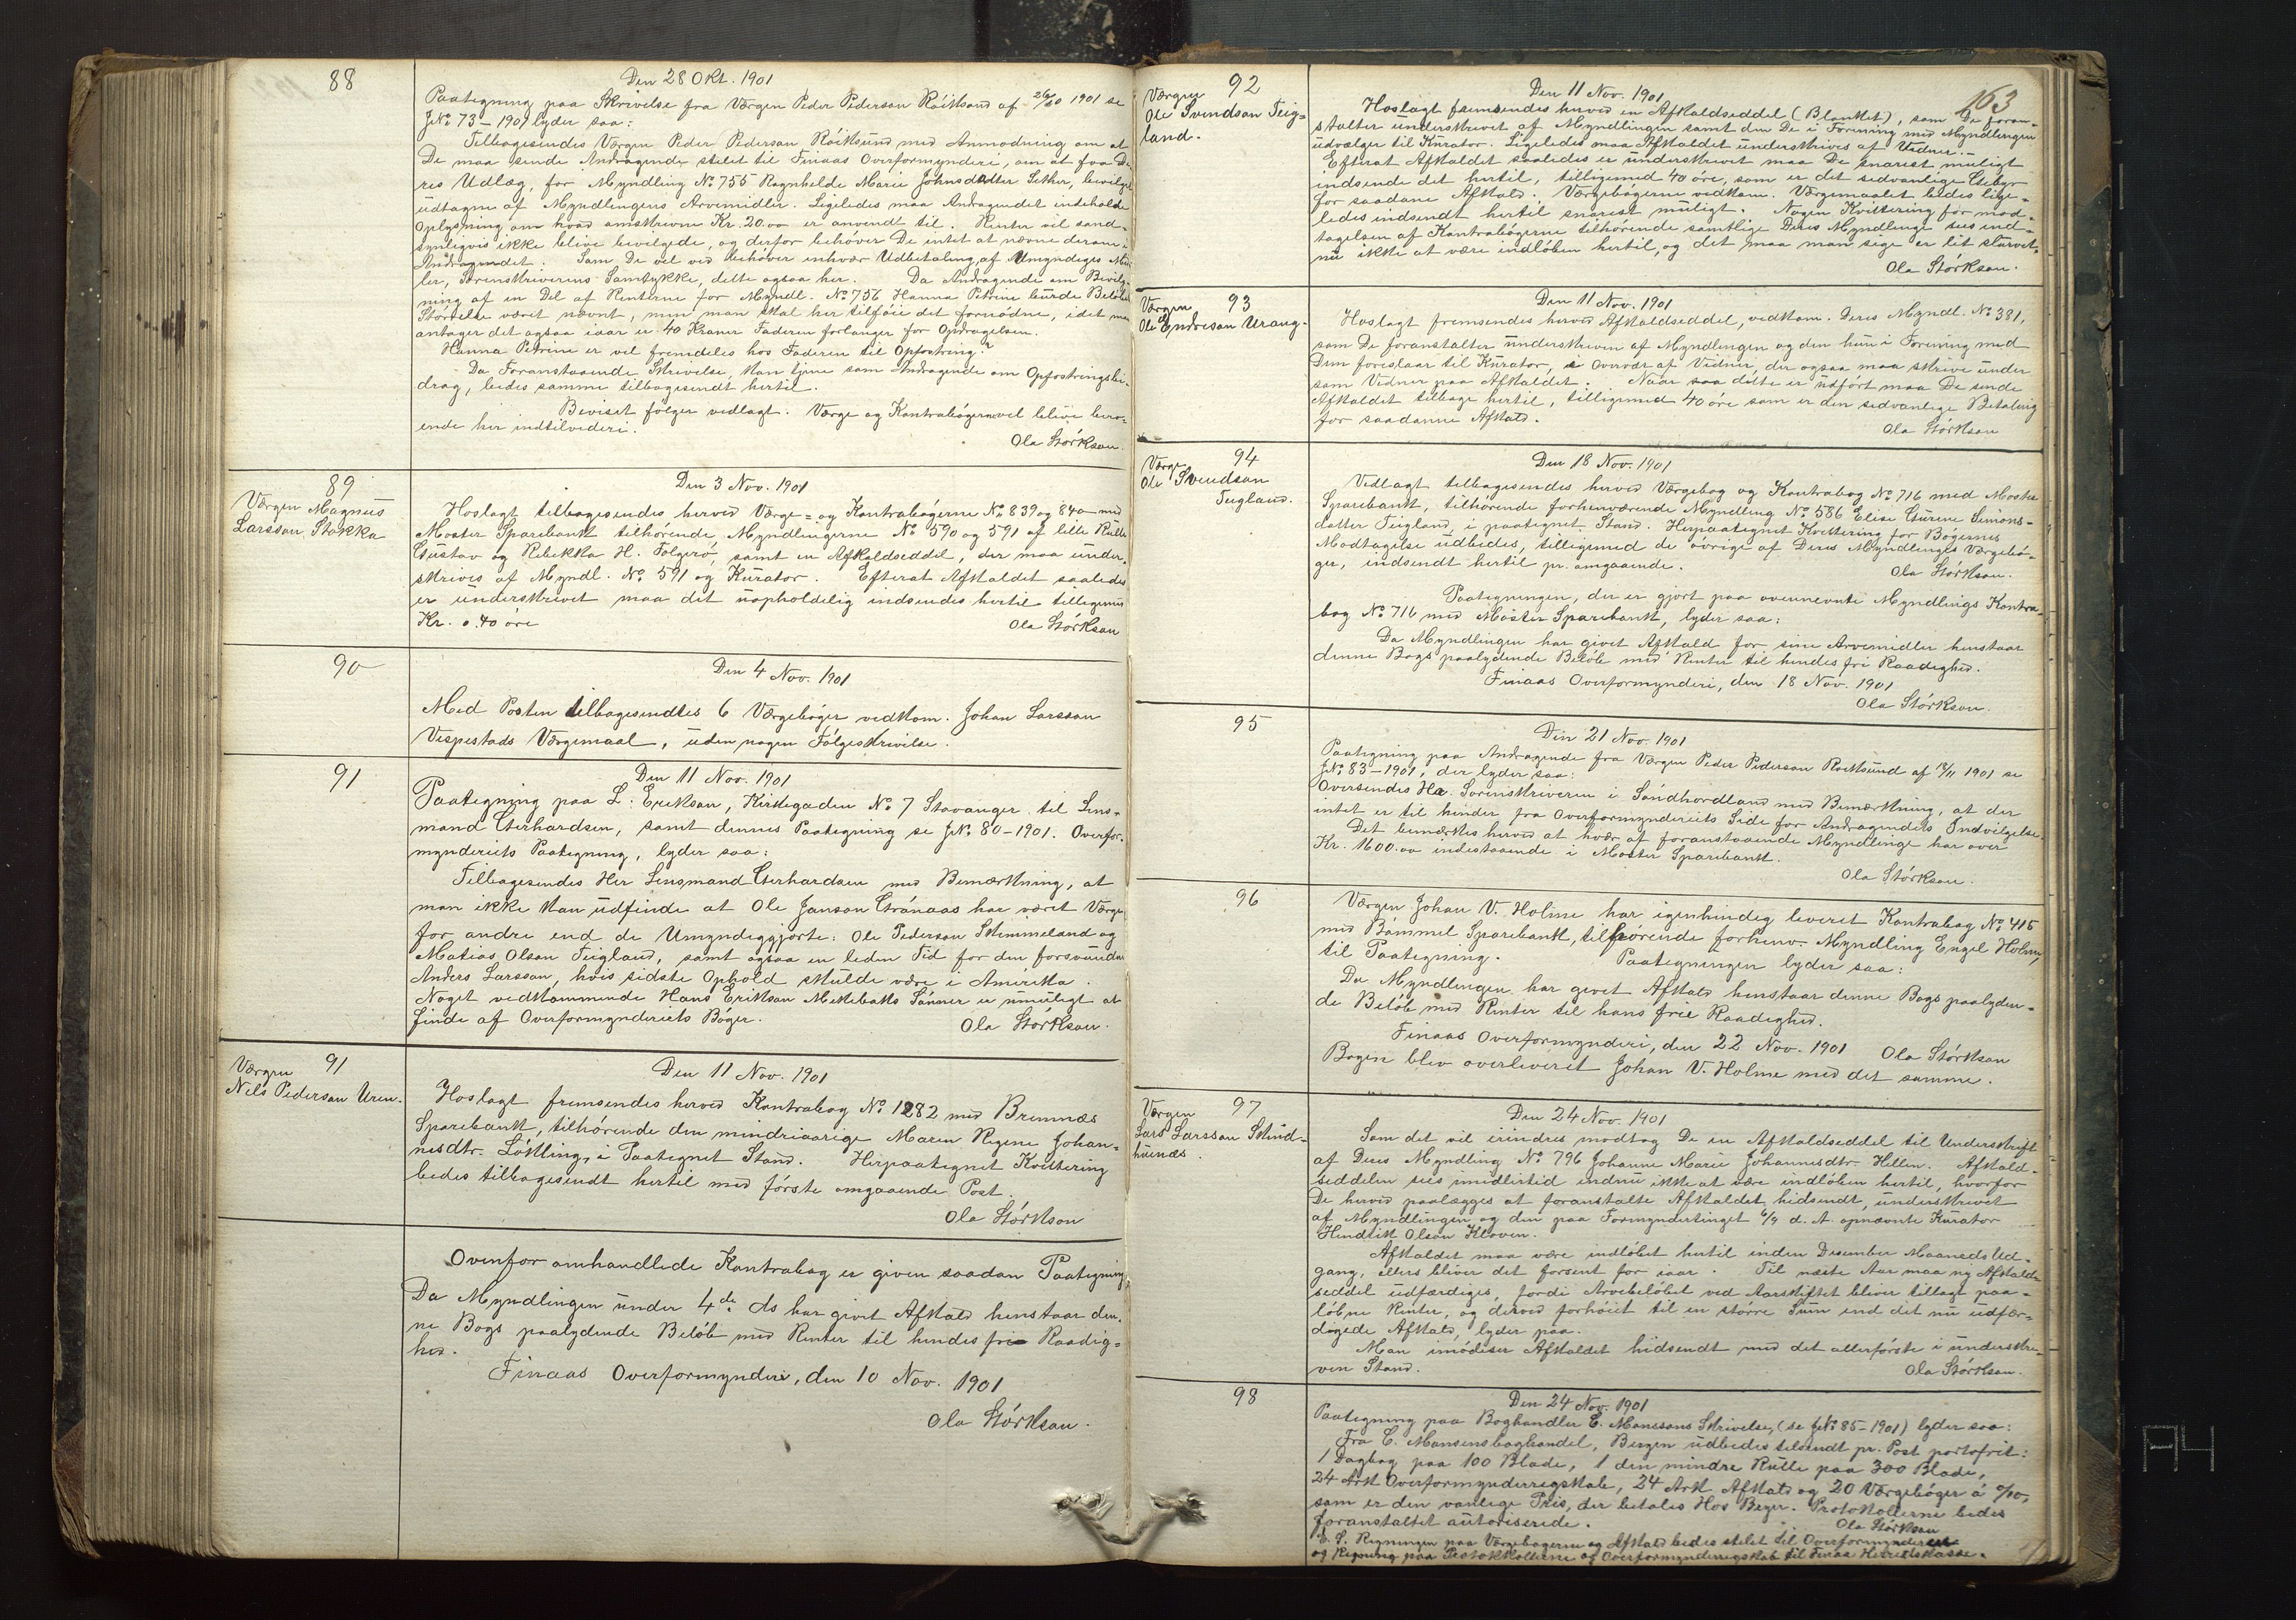 88
Den 28 Okt. 1901
Paategning paa Skrivelse fra Værgen Peder Pederson Röiksund af 26/10 1901 se
JNo. 73-1901 lyder saa:
Tilbagesendes Værgen Peder Pederson Röiksund med Anmodning om at
De maa sende Andragende stilet til Finaas Overformynderi, om at faa De
res Udlæg, for Myndling No. 755 Ragnhilde Marie Johnsdatter Sether, bevilget
udtagne af Myndlingens Arvemidler. Ligeledes maa Andragendet indeholde
Oplysning om hvad omskrevne Kr. 20.00 er anvendt til. Renter vil sand-
synligvis ikke blive bevilgede, og derfor behöver De intet at nævne derom i
Andragendet. Som De vel ved behöver enhvær Udbetaling, af Umyndiges Mid
ler, Sorenskriverens Samtykke, dette ogsaa her. Da Andragende om Bevilg-
ning af en Del af Renterne for Myndl. No. 756 Hanna Petrine burde Belöbets
Störrelse været nævnt, men man skal her tilföie det fornödne, idet man
antager det ogsaa iaar er 40 Kroner Faderen forlanger for Opdragelsen.
Hanna Petrine er vel fremdeles hos Faderen til Opfostring?
Da Foranstaaende Skrivelse, kan tjene som Andragende om Opfostringsbi-
drag, bedes samme tilbagesendt hertil.
Beviset fölger vedlagt. Værge og Kontrabögerne vil blive bero-
ende her indtilvideri.
Ola Störkson.
89
Værgen Magnus
Larsson Stokka
Den 3 Nov. 1901
Hoslagt tilbagesendes herved Værge- og Kontrabögerne No. 839 og 840 med
Moster Sparebank tilhörende Myndlingerne No. 590 og 591 af lille Rulle
Gustav og Rebekka H. Folgerö, samt en Afkaldseddel, der maa under-
skrives af Myndl. No. 591 og Kurator. Efterat Afkaldet saaledes
er underskrevet maa det uopholdelig indsendes hertil tilligemed
Kr. 0.40 öre
Ola Störkson
90
Den 4 Nov. 1901
Med Posten tilbagesendtes 6 Værgeböger vedkom. Johan Larsson
Vespestads Værgemaal, uden nogen Fölgeskrivelse.
91
Den 11 Nov. 1901
Paategning paa L. Erikson, Kirkegaden No. 7 Stavanger til Lens-
mand Gerhardsen, samt dennes Paategning se JNo. 80-1901. Overfor-
mynderiets Paategning, lyder saa:
Tilbagesendes Her Lensmand Gerhardsen med Bemærkning, at
man ikke kan udfinde at Ole Janson Gränaas har været Værge
for andre end de Umyndiggjorte: Ole Pederson Skimmeland og
Matias Olson Teigland, samt ogsaa en leden Tid for den forsvundne
Anders Larsson, hvis sidste Ophold skulde være i Amerika.
Noget vedkommende Hans Erikson Mekkebakks Sönner er umuligt at
finde af Overformynderiets Böger.
Ola Störkson.
Værgen 91
Nils Pederson Uren.
Den 11 Nov. 1901
Hoslagt fremsendes herved Kontrabog No. 1282 med Bremnæs
Sparebank, tilhörende den mindriaarige Maren Regine Johan-
nesdtr. Lökling, i Paategnet Stand. Herpaategnet Kvittering
bedes tilbagesendt hertil med förste omgaaende Post.
Ola Störkson
Ovenfor omhandlede Kontrabog er given saadan Paategning
Da Myndlingen under 4de. ds har givet Afkald henstaar den-
ne Bogs paalydende Belöb med Renter til hendes frie Raadig-
hed.
Finaas Overformynderi, den 10 Nov. 1901
Ola Störkson.
163
92
Værgen
Ole Svendson Teig-
land.
Den 11 Nov. 1901
Hoslagt fremsendes herved en Afkaldseddel (Blanket), som De foran-
stalter underskrevet af Myndlingen samt den De i Forening med Myndlingen
udvælger til Kurator. Ligeledes maa Afkaldet underskrives af Vidner.
Efterat Afkaldet saaledes er underskrevet maa De snarest muligt
indsende det hertil, tilligemed 40 öre, som er det sedvanlige Gebyr
for saadane Afkald. Værgebögerne vedkom. Værgemaalet bedes lige-
ledes indsendt hertil snarest muligt. Nogen Kvittering for mod-
tagelsen af Kontrabögerne tilhörende samtlige Deres Myndlinge sees end-
nu ikke at være indlöben hertil, og det maa man sige er lit slurvet.
Ola Störkson.
Værgen 93
Ole Endreson Urang.
Den 11 Nov. 1901
Hoslagt fremsendes herved Afkaldseddel, vedkom. Deres Myndl. No. 381,
som De foranstalter underskreven af Myndlingen og den hun i Forening med
Dem foreslaar til Kurator, i Overvær af Vidner, der ogsaa maa skrive under
som Vidner paa Afkaldet. Naar saa dette er udfört maa De sende
Afkaldet tilbage hertil, tilligemed 40 öre som er den sedvanlige Betaling
for saadanne Afkald.
Ola Störkson
Værge 94
Ole Svendson
Teigland.
Den 18 Nov. 1901
Vedlagt tilbagesendes herved Værgebog og Kontrabog No. 716 med Moster
Sparebank, tilhörende forhenværende Myndling No. 586 Elise Gurine Simons-
datter Teigland, i paategnet Stand. Herpaategnet Kvittering for Bögernes
Modtagelse udbedes, tilligemed de övrige af Deres Myndlinges Værgebö-
ger, indsendt hertil pr. omgaaende.
Ola Störkson.
Paategningen, der er gjort paa ovennevnte Myndlings Kontra-
bog No. 716 med Moster Sparebank, lyder saa:
Da Myndlingen har givet Afkald for sine Arvemidler henstaar
denne Bogs paalydende Belöb med Renter til hendes fri Raadighed.
Finaas Overformynderi, den 18 Nov. 1901
Ola Störkson.
95
Den 21 Nov. 1901
Paategning paa Andragende fra Værgen Peder Pederson Roiksund af 18/11 1901 se
JNo. 83-1901, der lyder saa:
Oversendes Hr. Sorenskriveren i Söndhordland med Bemærkning, at der
intet er til hinder fra Overformynderiets Side for Andragendets Indvilgelse.
Det bemærkes herved at hvær af foranstaaende Myndlinge har over
Kr. 1600.00 indestaaende i Moster Sparebank.
Ola Störkson.
96
Værgen Johan V. Holme har igenhindeg leveret Kontrabog No. 415
med Bömmel Sparebank, tilhörende forhenv. Myndling Engel Holme,
til Paategning. Paategningen lyder saa:
Da Myndlingen har givet Afkald henstaar denne Bogs paalyden-
de Belöb med Renter til hans frie Raadighed.
Finaas Overformynderi, den 22 Nov. 1901 Ola Störkson
Bogen blev overleveret Johan V. Holme med det samme.
Værgen 97
Lars Larsson Skud-
hvenæs.
Den 24 Nov. 1901
Som det vil erindres modtog De en Afkaldseddel til Underskrift
af Deres Myndling No. 796 Johanne Marie Johannesdtr. Hellen. Afkald-
seddelen sees imidlertid endnu ikke at være indlöben hertil, hvorfor
De herved paalægges at foranstalte Afkaldet, hidsendt, underskrevet
af Myndlingen og den paa Formyndertinget 6/9 d. A. opnævnte Kurator
Hendrik Olson Kloven.
Afkaldet maa være indlöbet hertil inden Desember Maaneds Ud-
gang, ellers bliver det forsent for iaar. Til næste Aar maa ny Afkald-
seddel udfærdiges, fordi Arvebelöbet ved Aarskiftet bliver tillagt paa-
löbne Renter, og derved forhöiet til en större Sum end det nu udfær-
digede Afkald, lyder paa.
Man imödeser Afkaldet hidsendt med det allerförste i underskre-
ven Stand.
Ola Störkson.
98
Den 24 Nov. 1901
Paategning paa Boghandler C. Manssons Skrivelse, (se JNo. 85-1901) lyder saa:
Fra C. Mansens boghandel, Bergen udbedes tilsendt pr. Post portofrit:
1 Dagbog paa 100 Blade, 1 den mindre Rulle paa 300 Blade,
24 Ark Overformynderregskab, 24 Ark Afkald og 20 Værgeböger á 0/10,
som er den vanlige Pris, der betales Hos Beyer. Protokollerne bedes
foranstaltet autoriserede.
Ola Störkson
E. S. Regningen paa Værgebögerne og Afkald bedes stilet til Overformynderiet
og Regning paa Protokkollerne og Overformynderregskab til Finaas Herredskasse.